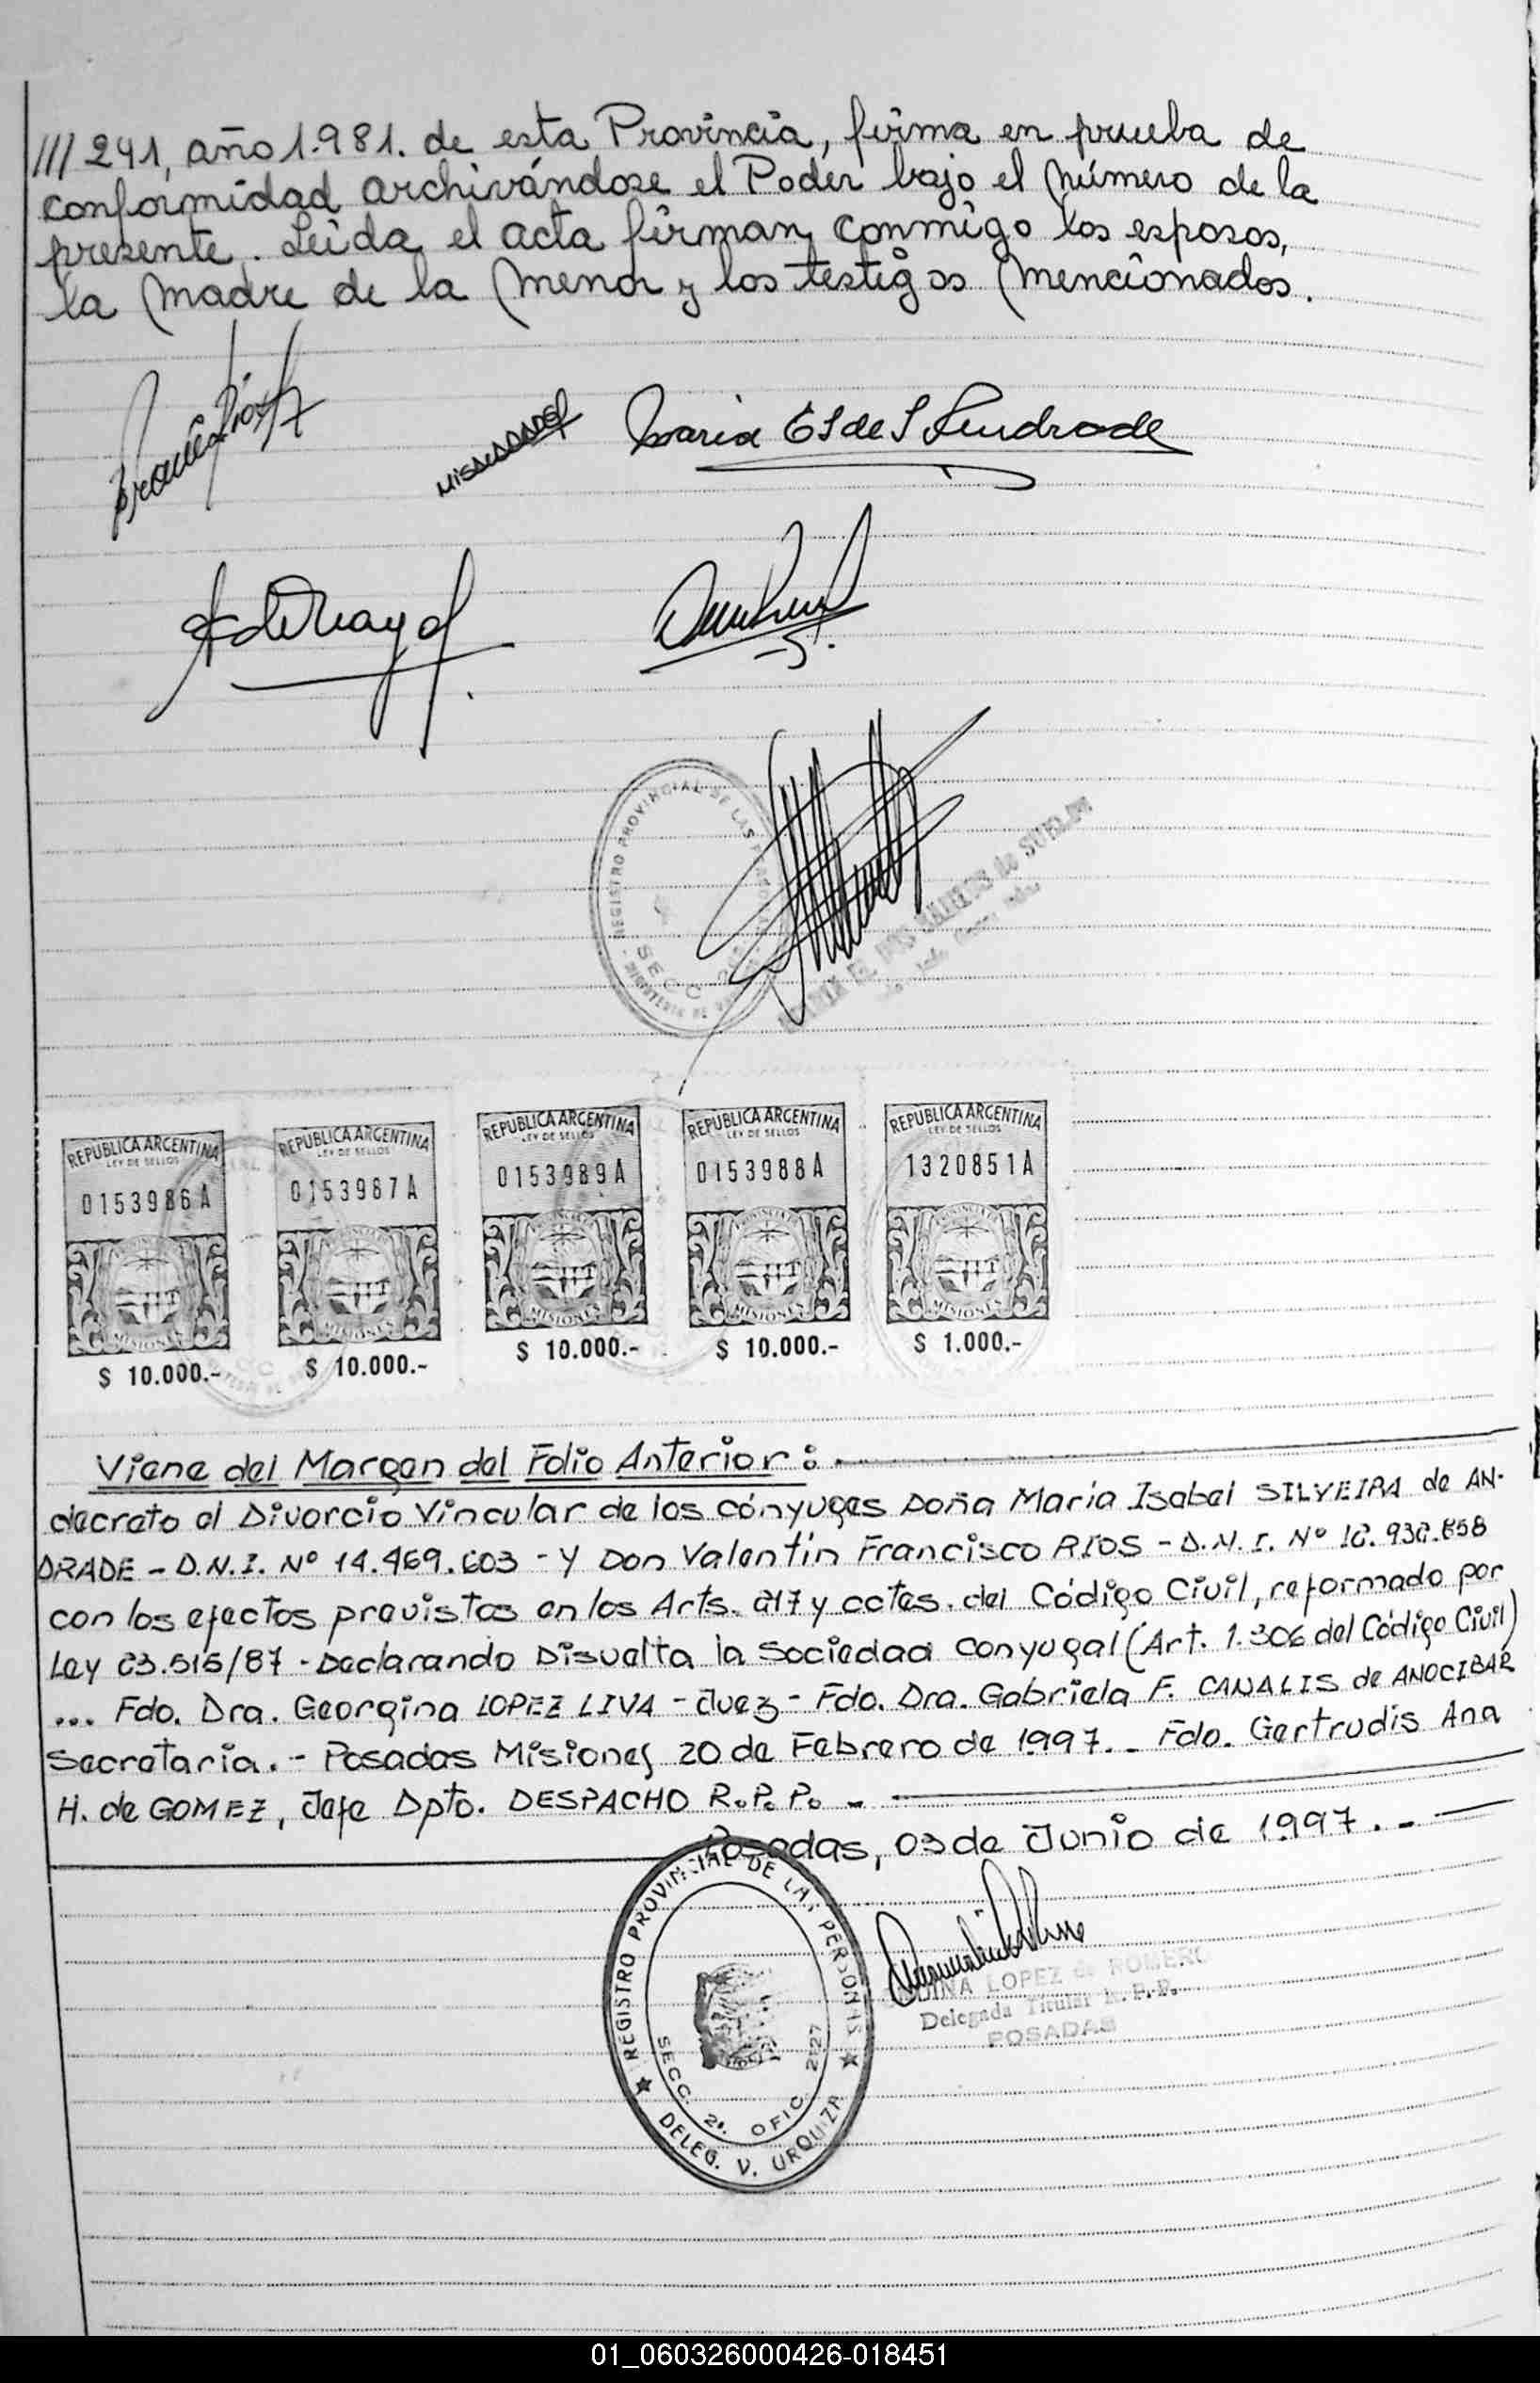 /// 241, año 1.981. de esta Provincia, firma en prueba de
conformidad archivándose el Poder bajo el número de la
presente. Leída el acta firman conmigo los esposos,
la madre de la menor y los testigos mencionados.
REGISTRO PROVINCIAL DE LAS
SECC
DOS SANTOS de
REPUBLICA ARGENTINA
LEY DE SELLOS
0153986A
MISIONES
$ 10.000.-
REPUBLICA ARGENTINA
LEY DE SELLOS
0153987A
MISIONES
$ 10.000.-
REPUBLICA ARGENTINA
LEY DE SELLOS
0153989A
MISIONES
$ 10.000.-
REPUBLICA ARGENTINA
LEY DE SELLOS
0153988A
MISIONES
$ 10.000.-
REPUBLICA ARGENTINA
LEY DE SELLOS
1320851A
MISIONES
$ 1.000.-
Viene del Margen del Folio Anterior:
decreto el Divorcio Vincular de los cónyuges Doña María Isabel SILVEIRA de AN-
DRADE - D.N.I. Nº 14.469.603 - Y Don Valentín Francisco RIOS - D.N.I. Nº
con los efectos previstos en los Arts. 217 y cctes. del Código Civil, reformado por
Ley 23.515/87 - Declarando Disuelta la Sociedad Conyugal (Art. 1.306 del Código Civil)
... Fdo. Dra. Georgina LOPEZ LIVA - Juez - Fdo. Dra. Gabriela F. CANALIS de ANOCIBAR
Secretaria. - Posadas Misiones 20 de Febrero de 1997. - Fdo. Gertrudis Ana
H. de GOMEZ, Jefe Dpto. DESPACHO R.P.P. -
Posadas, 03 de Junio de 1997. -
REGISTRO PROVINCIAL DE LAS PERSONAS
SECC. 2ª. OFIC. 2227
DELEG. V. URQUIZA
LOPEZ de ROMERO
Delegada Titular R.P.P.
POSADAS
01_060326000426-018451